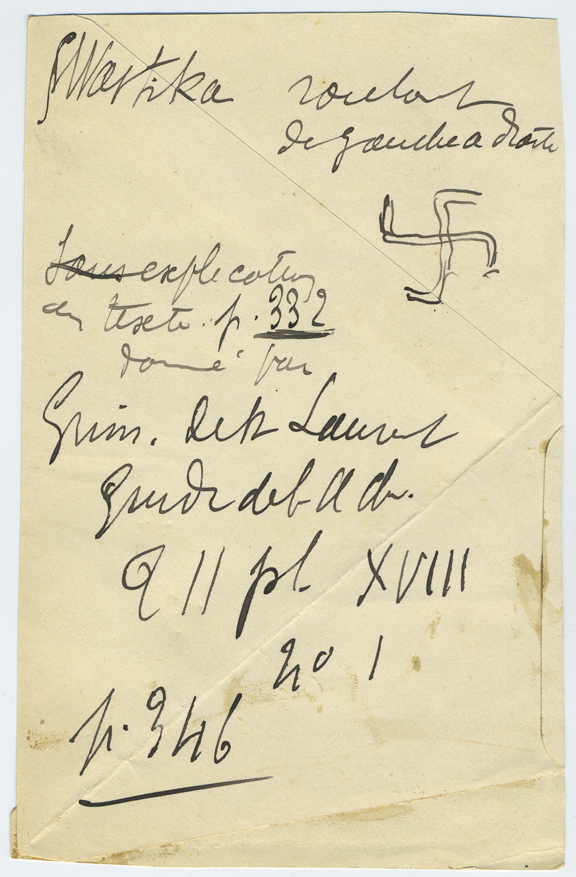 Swastika roulant
de gauche a droite
Sans explication
du texte. p. 332
donné par
Grim. de St Laurent
Guide de l'A ch.
T II pl XVIII
no 1
p. 346